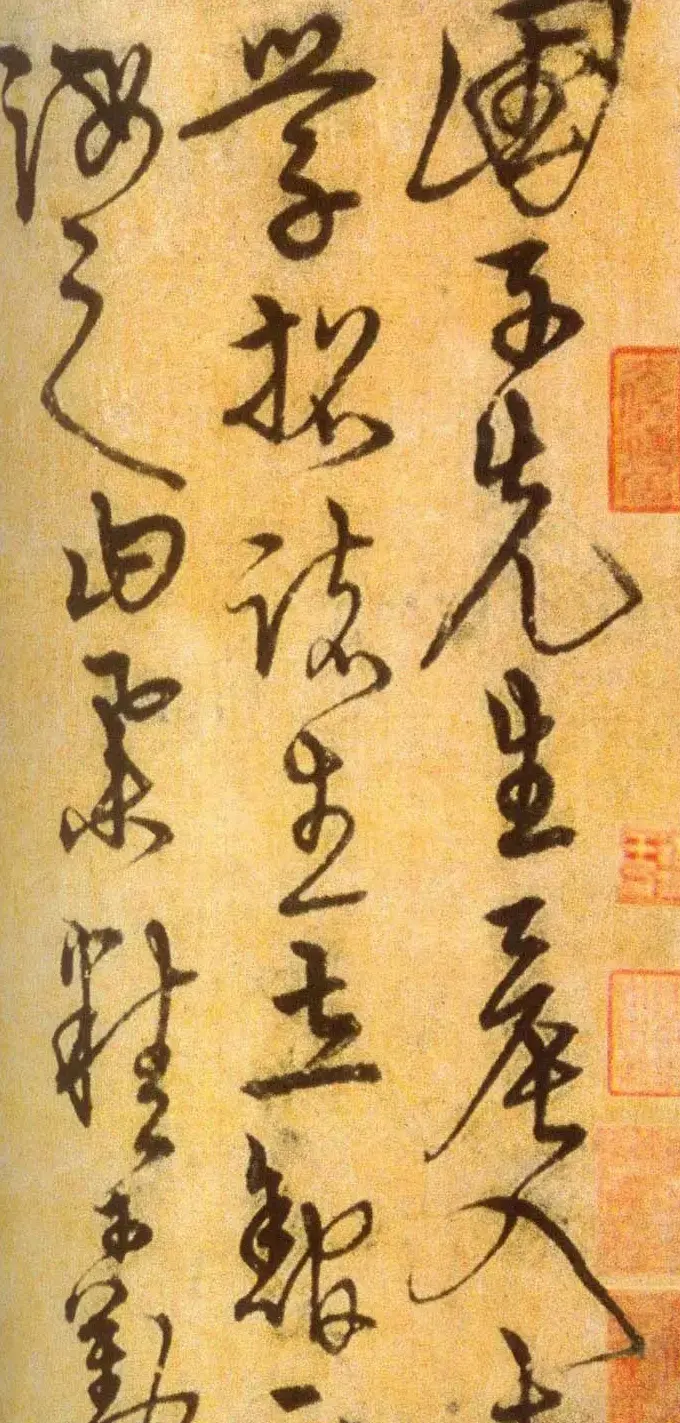 國子先生晨入太
學招諸生立館下
誨之曰業精于勤